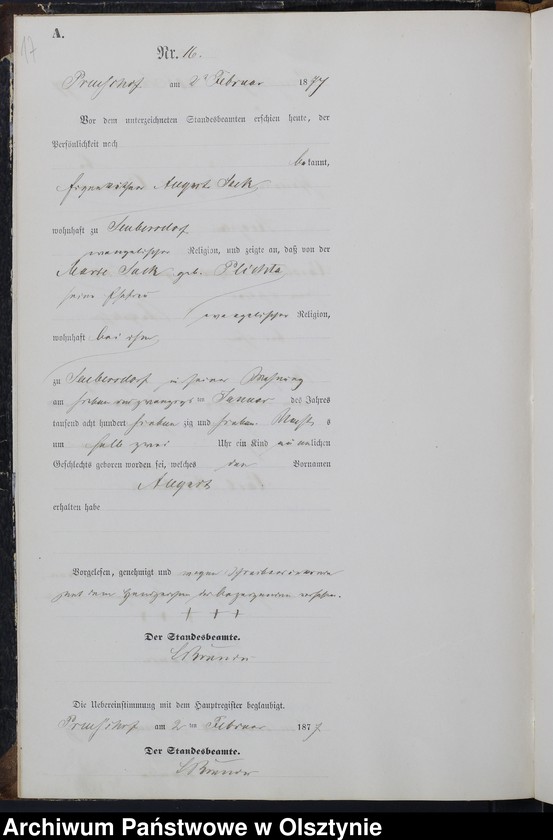 17
A.
Nr. 16.
am 2 Februar 1877
Vor dem unterzeichneten Standesbeamten erschien heute, der
Persönlichkeit nach
bekannt,
August Jack
wohnhaft zu
evangelischer Religion, und zeigte an, daß von der
Marie Jack geb. Plichta
seine Ehefrau
evangelischer Religion,
wohnhaft bei ihm
zu in seiner Wohnung
am sieben und zwanzigs ten Januar des Jahres
tausend acht hundert sieben zig und sieben Nachts
um halb zwei Uhr ein Kind männlichen
Geschlechts geboren worden sei, welches den Vornamen
August
erhalten habe
Vorgelesen, genehmigt und wegen
mit dem Handzeichen versehen.
+ + +
Der Standesbeamte.
Die Uebereinstimmung mit dem Hauptregister beglaubigt.
am 2 ten Februar 1877
Der Standesbeamte.
Archiwum Państwowe w Olsztynie